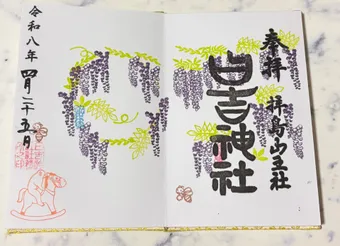 奉拝 拝島山王社
日吉神社
令和八年 四月二十五日